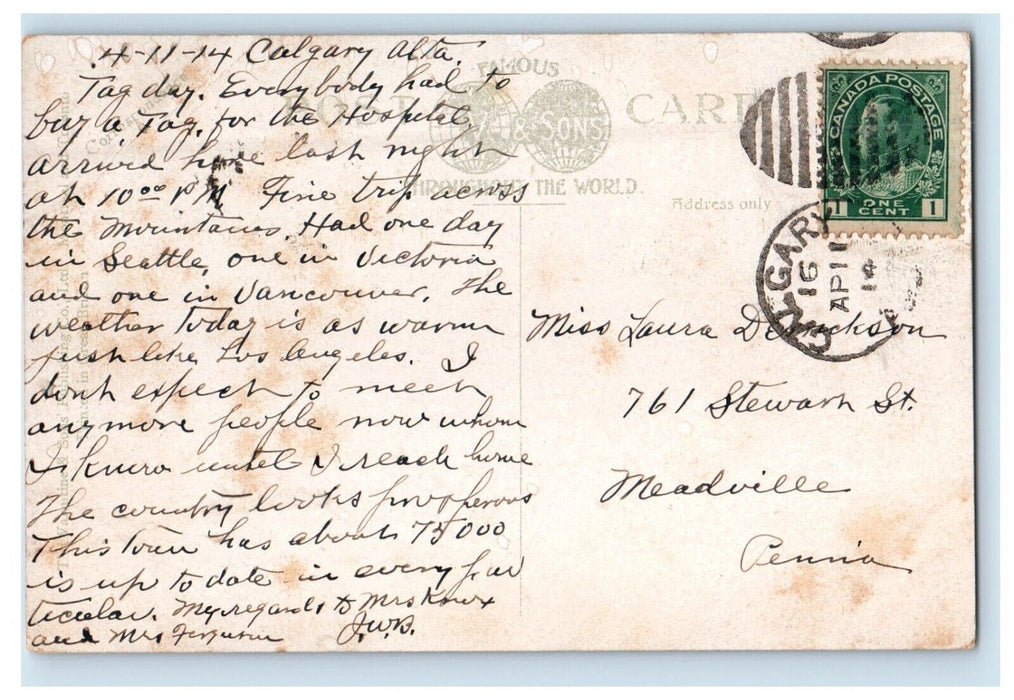 4-11-14 Calgary Alta.
Tag day. Everybody had to
buy a Tag. for the Hospital
arrived here last night
at 10⁰⁰ PM Fine trip across
the Mountains. Had one day
in Seattle, one in Victoria
and one in Vancouver. The
weather today is as warm
just like Los Angeles. I
dont expect to meet
anymore people now whom
I know until I reach home
The country looks prosperous
This town has about 75000
is up to date in every par
ticular. My regards to Mrs Knox
and Mrs Ferguson J.W.B.
FAMOUS
POST CARD
& SONS
THROUGHOUT THE WORLD.
Address only
CANADA POSTAGE
1 ONE CENT 1
CALGARY
16
AP 11
14
Miss Laura Derrickson
761 Stewart St.
Meadville
Penn'a